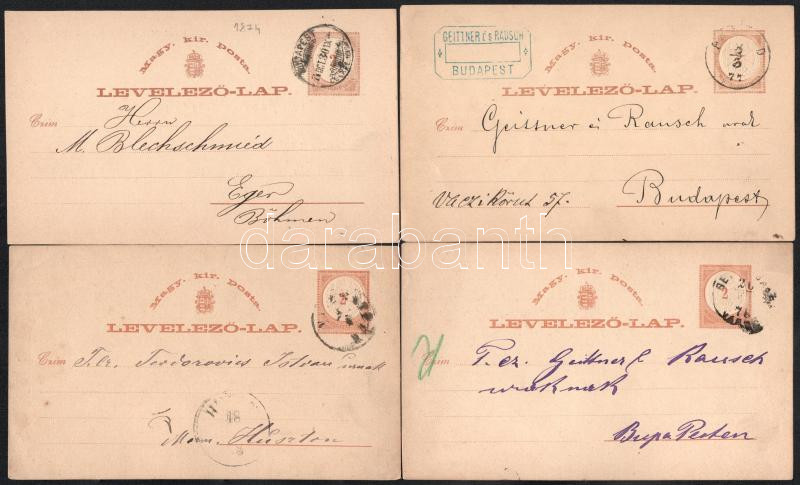 1874
Magy. kir. posta.
LEVELEZŐ-LAP.
BUDAPEST
Czim
Herrn
M. Blechschmied
Eger
Böhmen
GEITTNER és RAUSCH
BUDAPEST
Magy. kir. posta.
LEVELEZŐ-LAP.
Czim
Geittner és Rausch urak
Váczi Körut 57.
Budapest
darabanth
Magy. kir. posta.
LEVELEZŐ-LAP.
2
Czim
Teodorovics Istvan urnak
18
Magy. kir. posta.
LEVELEZŐ-LAP.
2
76
Czim
T. cz. Geittner & Rausch
uraknak
BupaPesten